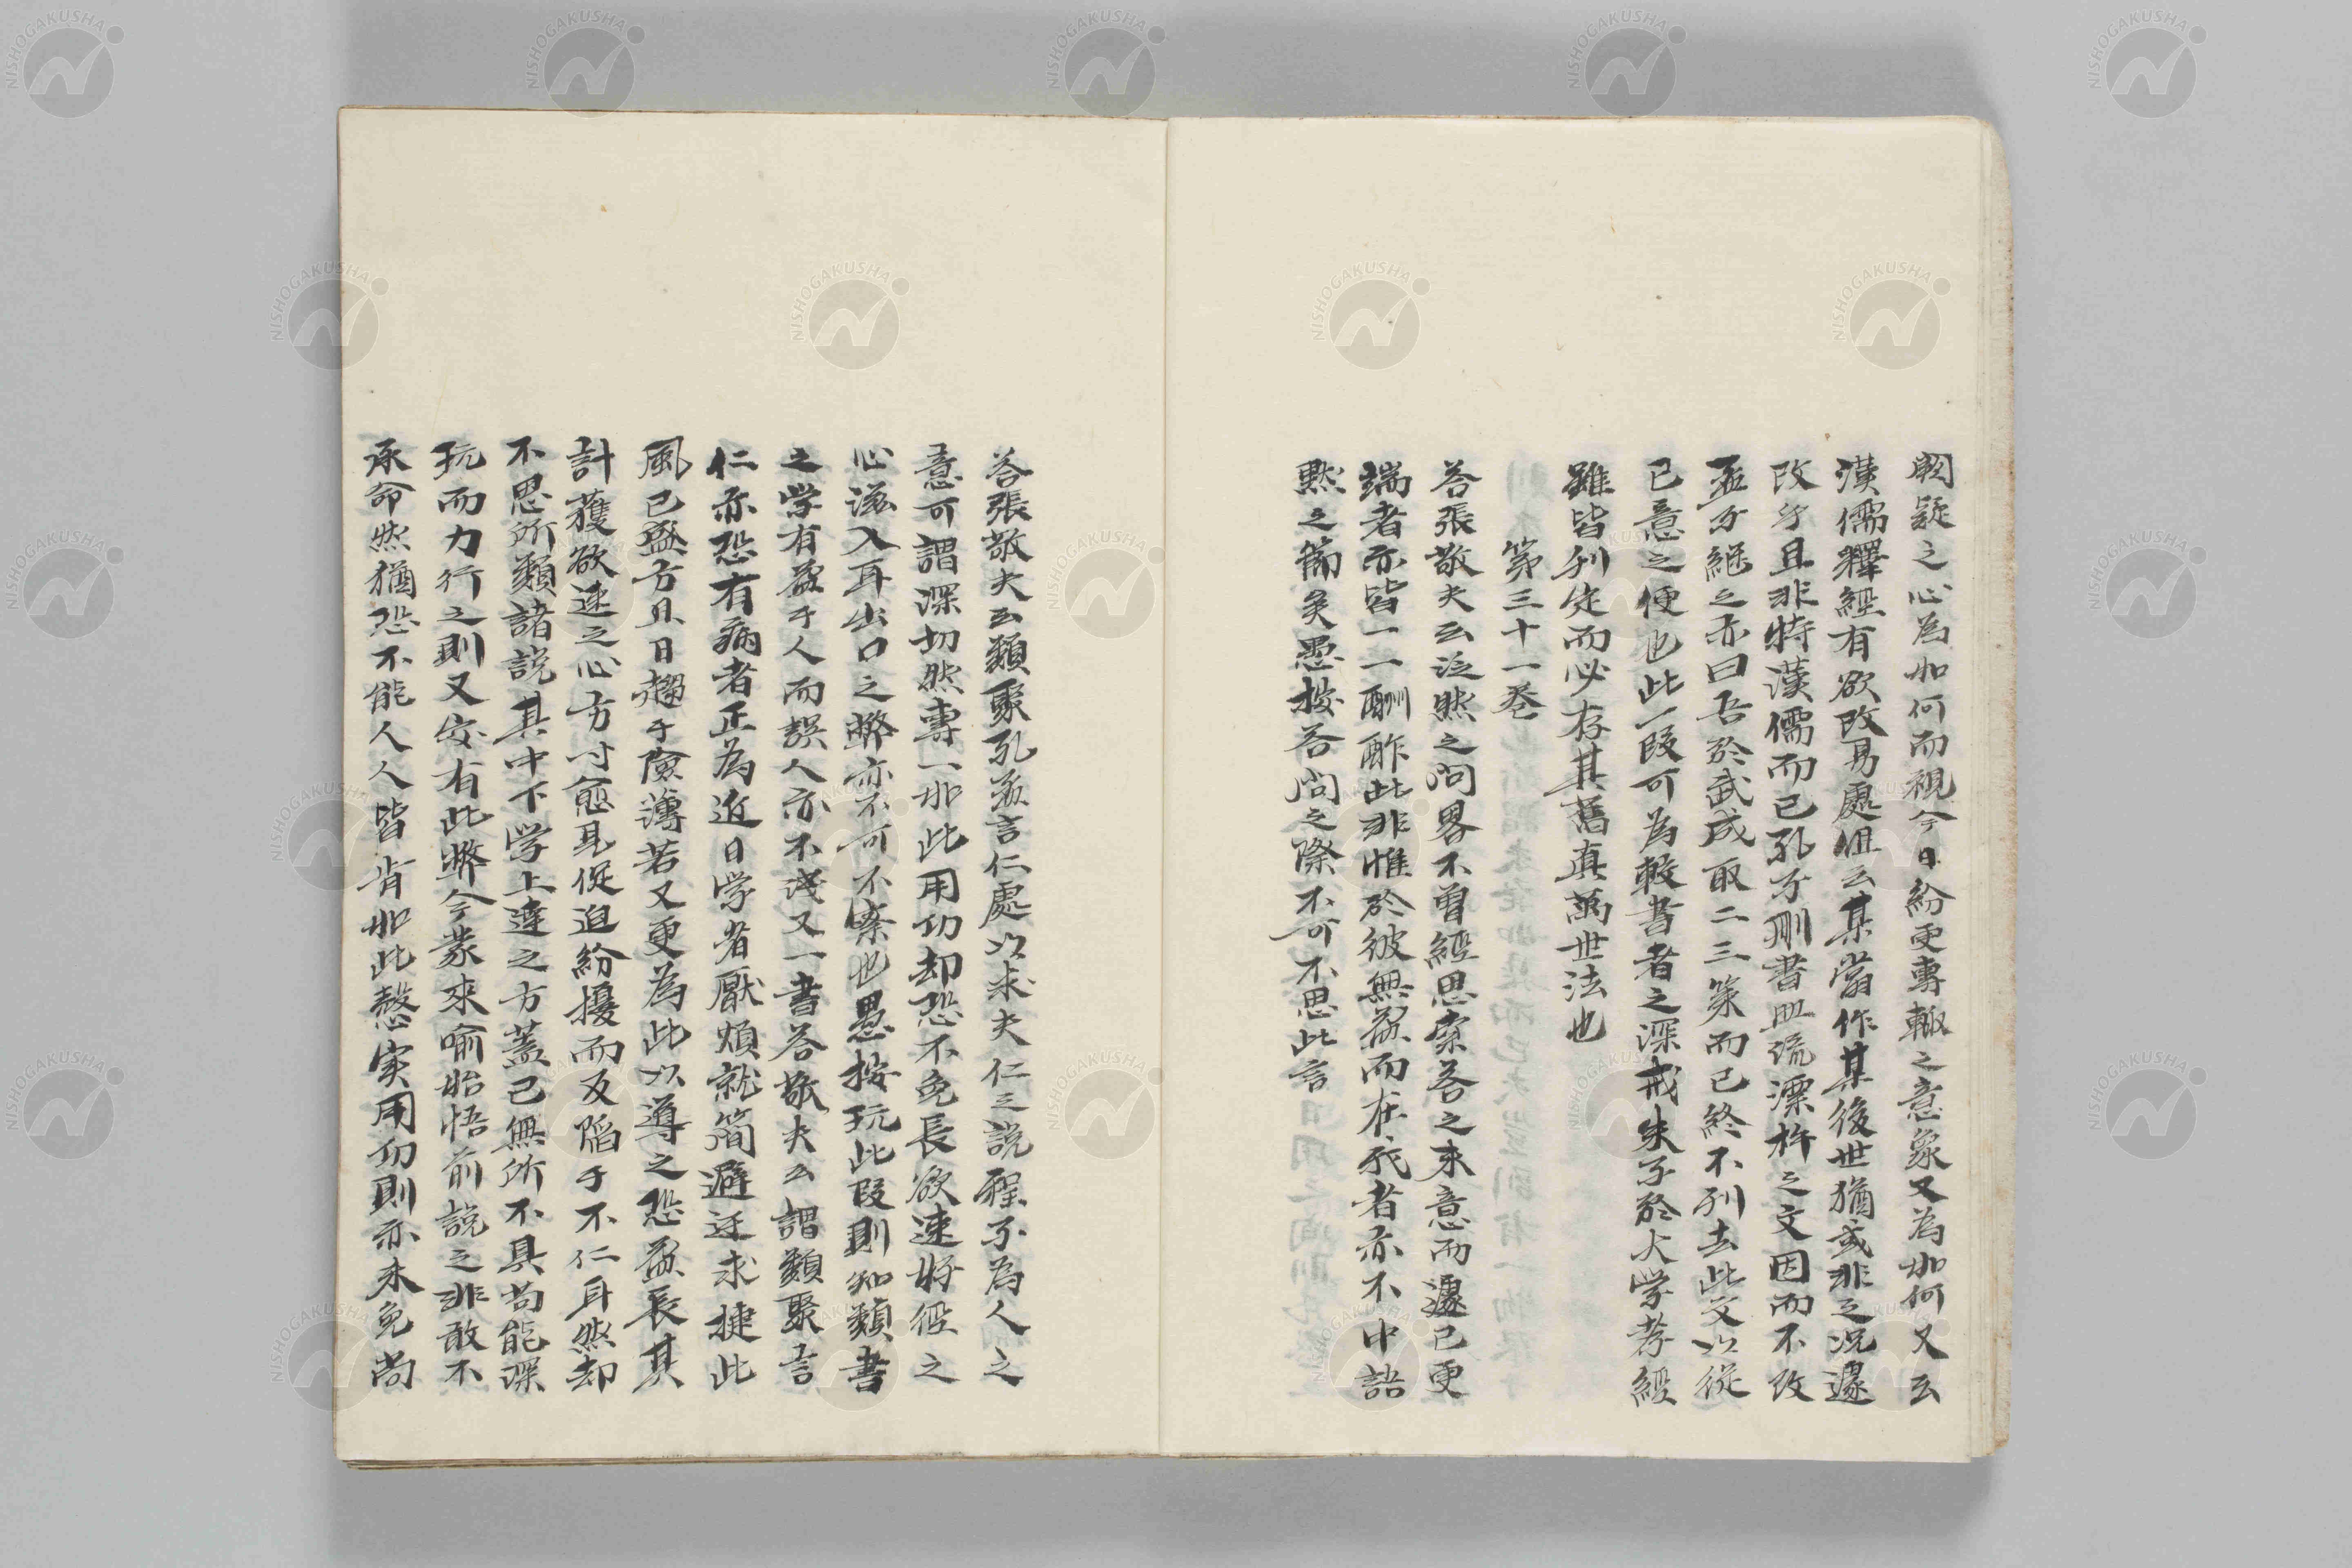 闕疑之心為如何而視今日紛更專輙之意象又為如何又云
漢儒釋經有欲改易處但云某當作某後世猶或非之况遽
改乎且非特漢儒而已孔子刪書血流漂杵之文因而不改
孟子継之亦曰吾於武成取二三策而已終不刋去此文以従
已意之便也此一段可為較書者之深戒朱子於大学孝經
雖皆刋定而必存其舊真萬世法也
第三十一巻
荅張敬夫云泛然之問畧不曽經思索荅之未意而遽已更
端者亦皆一一酬酢此非惟於彼無益而在我者亦不中語
黙之莭矣愚按荅問之際不可不思此言
荅張敬夫云類聚孔孟言仁處以求夫仁之説程子為人之
意可謂深切然專一如此用功却恐不免長欲速好徑之
心滋入耳出口之弊亦不可不察也愚按玩此段則知類書
之学有益于人而誤人亦不浅又一書荅敬夫云謂類聚言
仁亦恐有病者正為近日学者厭煩就簡避迂求捷此
風已盛方且日趨于險薄若又更為此以導之恐益長其
計獲欲速之心方寸愈見促迫紛擾而反陥于不仁耳然却
不思所類諸説其中下学上達之方蓋已無所不具苟能深
玩而力行之則又安有此弊今蒙來喻始悟前説之非敢不
承命然猶恐不能人人皆肯如此慤実用功則亦未免尚
NISHOGAKUSHA